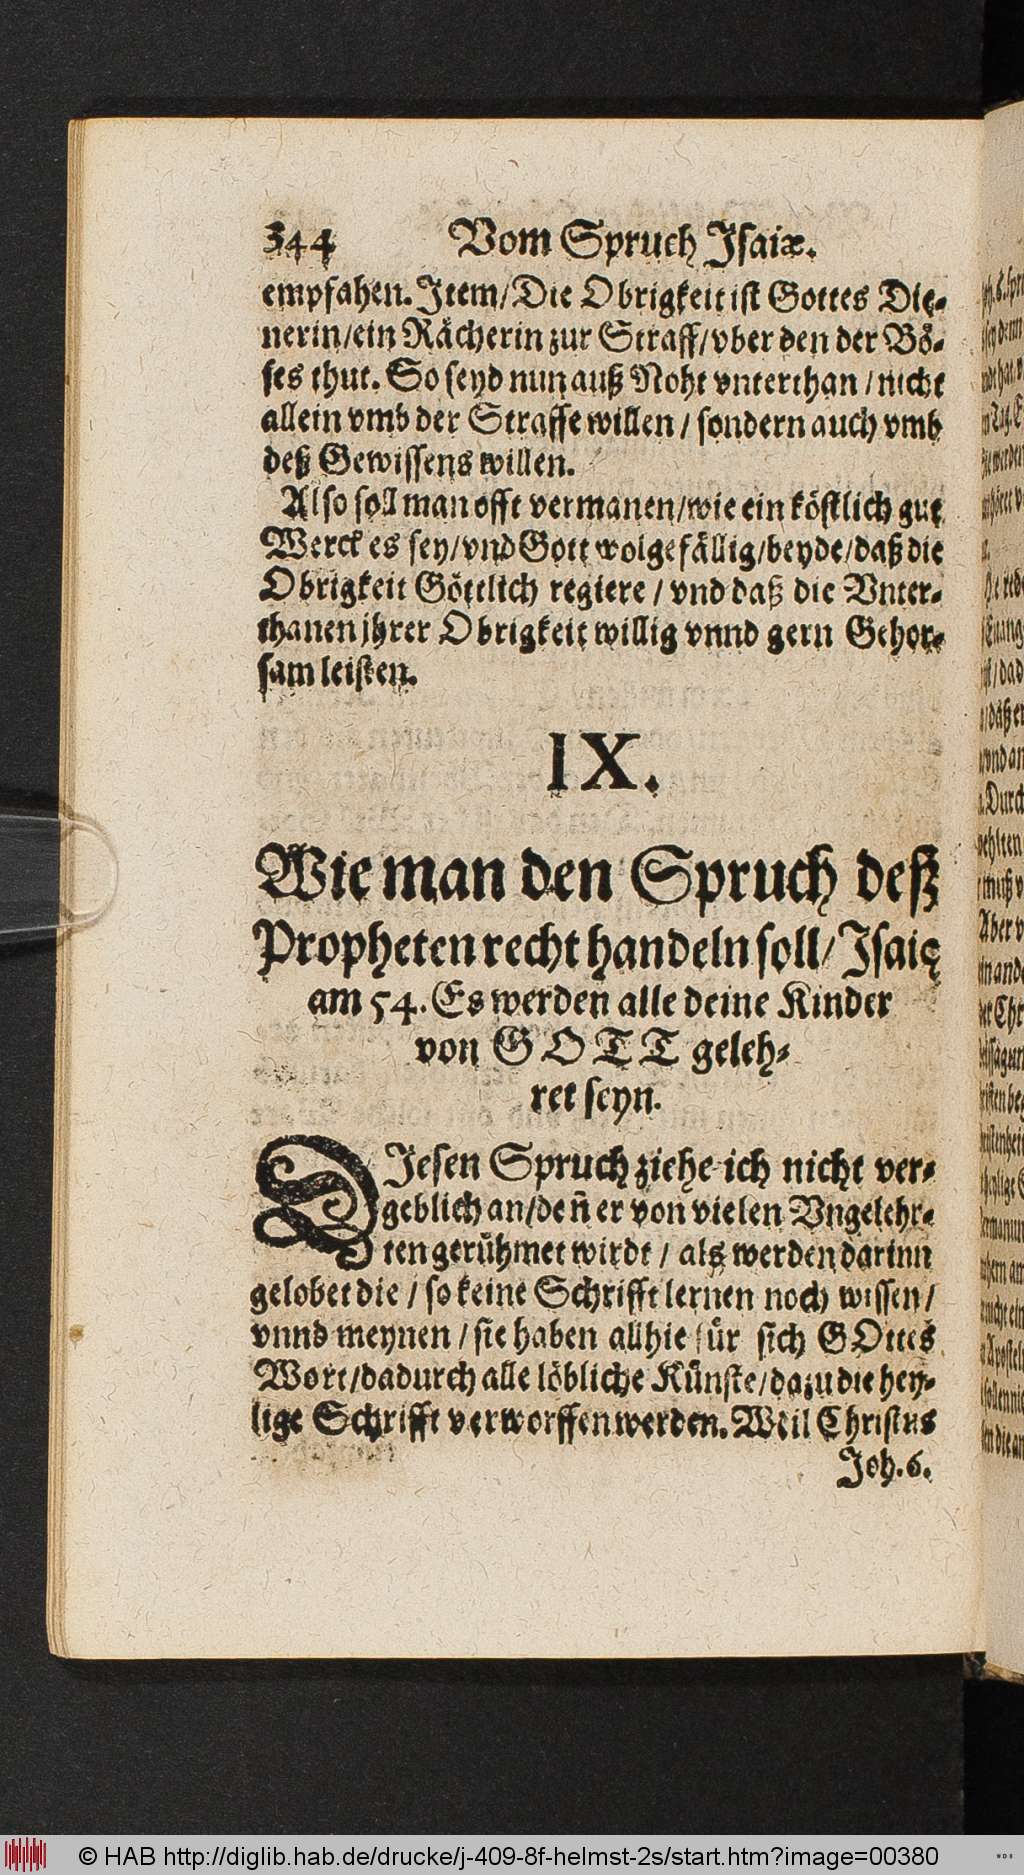 344 Vom Spruch Jsaiæ.
empfahen. Jtem/Die Obrigkeit ist Gottes Die-
nerin/ein Rächerin zur Straff/vber den der Bö-
ses thut. So seyd nun auß Noht vnterthan / nicht
allein vmb der Straffe willen / sondern auch vmb
deß Gewissens willen.
Also soll man offt vermanen/wie ein köstlich gut
Werck es sey/vnd Gott wolgefällig/beyde/daß die
Obrigkeit Göttlich regiere / vnd daß die Vnter-
thanen jhrer Obrigkeit willig vnnd gern Gehor-
sam leisten.
IX.
Wie man den Spruch deß
Propheten recht handeln soll/ Jsaię
am 54. Es werden alle deine Kinder
von GOTT geleh-
ret seyn.
DJesen Spruch ziehe ich nicht ver-
geblich an/deñ er von vielen Vngelehr-
ten gerühmet wirdt / als werden darinn
gelobet die / so keine Schrifft lernen noch wissen /
vnnd meynen / sie haben allhie für sich GOttes
Wort/dadurch alle löbliche Künste/dazu die hey-
lige Schrifft verworffen werden. Weil Christus
Joh. 6.
© HAB http://diglib.hab.de/drucke/j-409-8f-helmst-2s/start.htm?image=00380